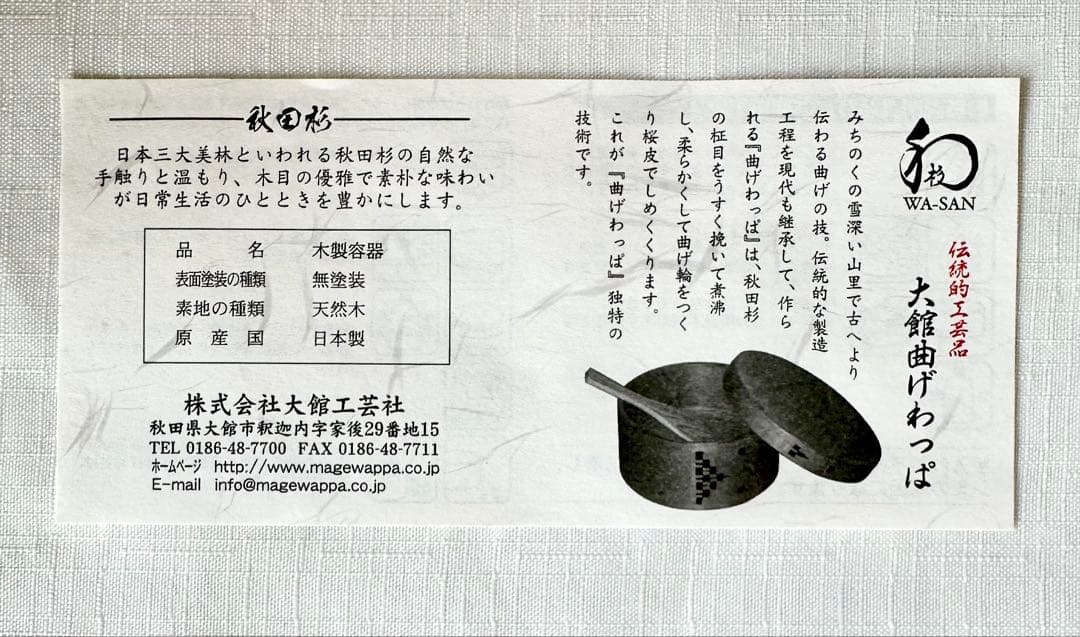 和杉
WA-SAN
伝統的工芸品
大館曲げわっぱ
みちのくの雪深い山里で古へより
伝わる曲げの技。伝統的な製造
工程を現代も継承して、作ら
れる『曲げわっぱ』は、秋田杉
の柾目をうすく挽いて煮沸
し、柔らかくして曲げ輪をつく
り桜皮でしめくくります。
これが『曲げわっぱ』独特の
技術です。
秋田杉
日本三大美林といわれる秋田杉の自然な
手触りと温もり、木目の優雅で素朴な味わい
が日常生活のひとときを豊かにします。
品名 木製容器
表面塗装の種類 無塗装
素地の種類 天然木
原産国 日本製
株式会社大館工芸社
秋田県大館市釈迦内字家後29番地15
TEL 0186-48-7700 FAX 0186-48-7711
ホームページ http://www.magewappa.co.jp
E-mail info@magewappa.co.jp